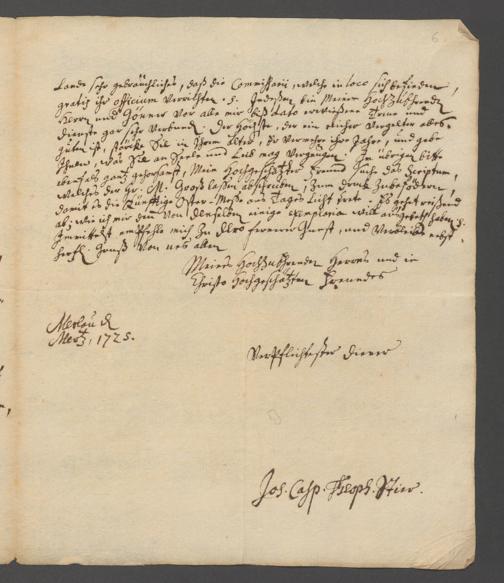 6.
Lande sehr gebräuchliches, daß die Commissarii, welche in loco sich befinden,
gratis ihr officium verrichten. Indeßen bin Meinem Hochzuehrenden
Herrn und Gönner vor alle mir hoc dato erwiesene Treue und
dienste gar sehr verbunden. Der Höchste, der ein reicher Vergelter alles
guten ist, stärcke Sie in Ihrem Alter, Er vermehre ihre Jahre, und gebe
Ihnen, was Sie an Seele und Leib mag vergnügen. Im übrigen bitte
ganz gehorsamst, Mein Hochgeschätzter Freund Suche das Scriptum,
welches der Hr. M. Grosß laßen abschreiben, zum druck zu befördern,
damit es die Künfftige Oster-Meße ans Tages Licht trete. Es gehet reißend
ab, wie ich mir denn von denselben einige exemplaria will ausgebeten haben.
Immittelst empfehle mich zu Dero fernern Gunst, und Verbleibe nebst
hertzl. Gruß von uns allen
Meines Hochzuehrenden Herrns und in
Christo Hochgeschätzten Freundes
Merlau d.
Mertz, 1725.
Verpflichtester diener
Joh. Casp. Theoph. Stier.